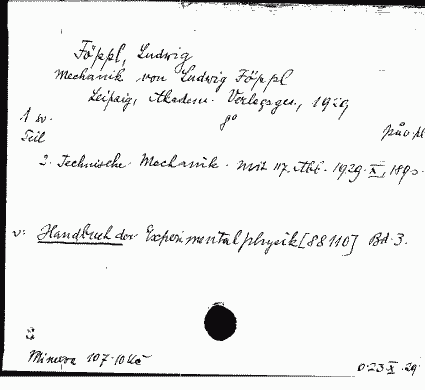 Föppl, Ludwig
Mechanik von Ludwig Föppl
Leipzig, Akadem. Verlagsges., 1929
1 sv. 8°
Teil
2. Technische Mechanik. Mit 117. Abb. 1929. X, 189 s.
v: Handbuch der Experimentalphysik [88110] Bd. 3.
Minerva 107.10 Kč
0.23.X.29